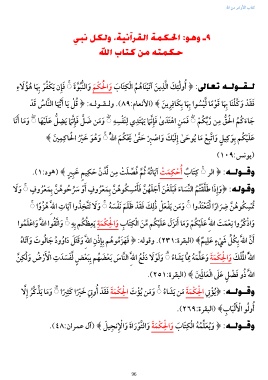 كتاب الأثر من الله
٩- وهو: الحكمة القرآنية، ولكل نبي
حكمته من كتاب الله
لـقـولـه تعالى: ﴿ أُولَٰئِكَ الَّذِينَ آتَيْنَاهُمُ الْكِتَابَ وَالْحُكْمَ وَالنُّبُوَّةَ ۚ فَإِن يَكْفُرْ بِهَا هَٰؤُلَاءِ
فَقَدْ وَكَّلْنَا بِهَا قَوْمًا لَّيْسُوا بِهَا بِكَافِرِينَ ﴾ (الأنعام:٨٩). ولـقـولـه: ﴿ قُلْ يَا أَيُّهَا النَّاسُ قَدْ
جَاءَكُمُ الْحَقُّ مِن رَّبِّكُمْ ۖ فَمَنِ اهْتَدَىٰ فَإِنَّمَا يَهْتَدِي لِنَفْسِهِ ۖ وَمَن ضَلَّ فَإِنَّمَا يَضِلُّ عَلَيْهَا ۖ وَمَا أَنَا
عَلَيْكُم بِوَكِيلٍ وَاتَّبِعْ مَا يُوحَىٰ إِلَيْكَ وَاصْبِرْ حَتَّىٰ يَحْكُمَ اللَّهُ ۚ وَهُوَ خَيْرُ الْحَاكِمِينَ ﴾
(يونس:١٠٩)
وقـولـه: ﴿ الر ۚ كِتَابٌ أُحْكِمَتْ آيَاتُهُ ثُمَّ فُصِّلَتْ مِن لَّدُنْ حَكِيمٍ خَبِيرٍ ﴾ (هود:١).
وقـولـه: ﴿وَإِذَا طَلَّقْتُمُ النِّسَاءَ فَبَلَغْنَ أَجَلَهُنَّ فَأَمْسِكُوهُنَّ بِمَعْرُوفٍ أَوْ سَرِّحُوهُنَّ بِمَعْرُوفٍ ۚ وَلَا
تُمْسِكُوهُنَّ ضِرَارًا لِّتَعْتَدُوا ۚ وَمَن يَفْعَلْ ذَٰلِكَ فَقَدْ ظَلَمَ نَفْسَهُ ۚ وَلَا تَتَّخِذُوا آيَاتِ اللَّهِ هُزُوًا ۚ
وَاذْكُرُوا نِعْمَتَ اللَّهِ عَلَيْكُمْ وَمَا أَنزَلَ عَلَيْكُم مِّنَ الْكِتَابِ وَالْحِكْمَةِ يَعِظُكُم بِهِ ۚ وَاتَّقُوا اللَّهَ وَاعْلَمُوا
أَنَّ اللَّهَ بِكُلِّ شَيْءٍ عَلِيمٌ﴾ (البقرة:٢٣١). وقوله: ﴿ فَهَزَمُوهُم بِإِذْنِ اللَّهِ وَقَتَلَ دَاوُودُ جَالُوتَ وَآتَاهُ
اللَّهُ الْمُلْكَ وَالْحِكْمَةَ وَعَلَّمَهُ مِمَّا يَشَاءُ ۗ وَلَوْلَا دَفْعُ اللَّهِ النَّاسَ بَعْضَهُم بِبَعْضٍ لَّفَسَدَتِ الْأَرْضُ وَلَٰكِنَّ
اللَّهَ ذُو فَضْلٍ عَلَى الْعَالَمِينَ ﴾ (البقرة:٢٥١).
وقـولـه: ﴿يُؤْتِي الْحِكْمَةَ مَن يَشَاءُ ۚ وَمَن يُؤْتَ الْحِكْمَةَ فَقَدْ أُوتِيَ خَيْرًا كَثِيرًا ۗ وَمَا يَذَّكَّرُ إِلَّا
أُولُو الْأَلْبَابِ﴾ (البقرة:٢٦٩).
وقـولـه: ﴿ وَيُعَلِّمُهُ الْكِتَابَ وَالْحِكْمَةَ وَالتَّوْرَاةَ وَالْإِنجِيلَ ﴾ (آل عمران:٤٨).